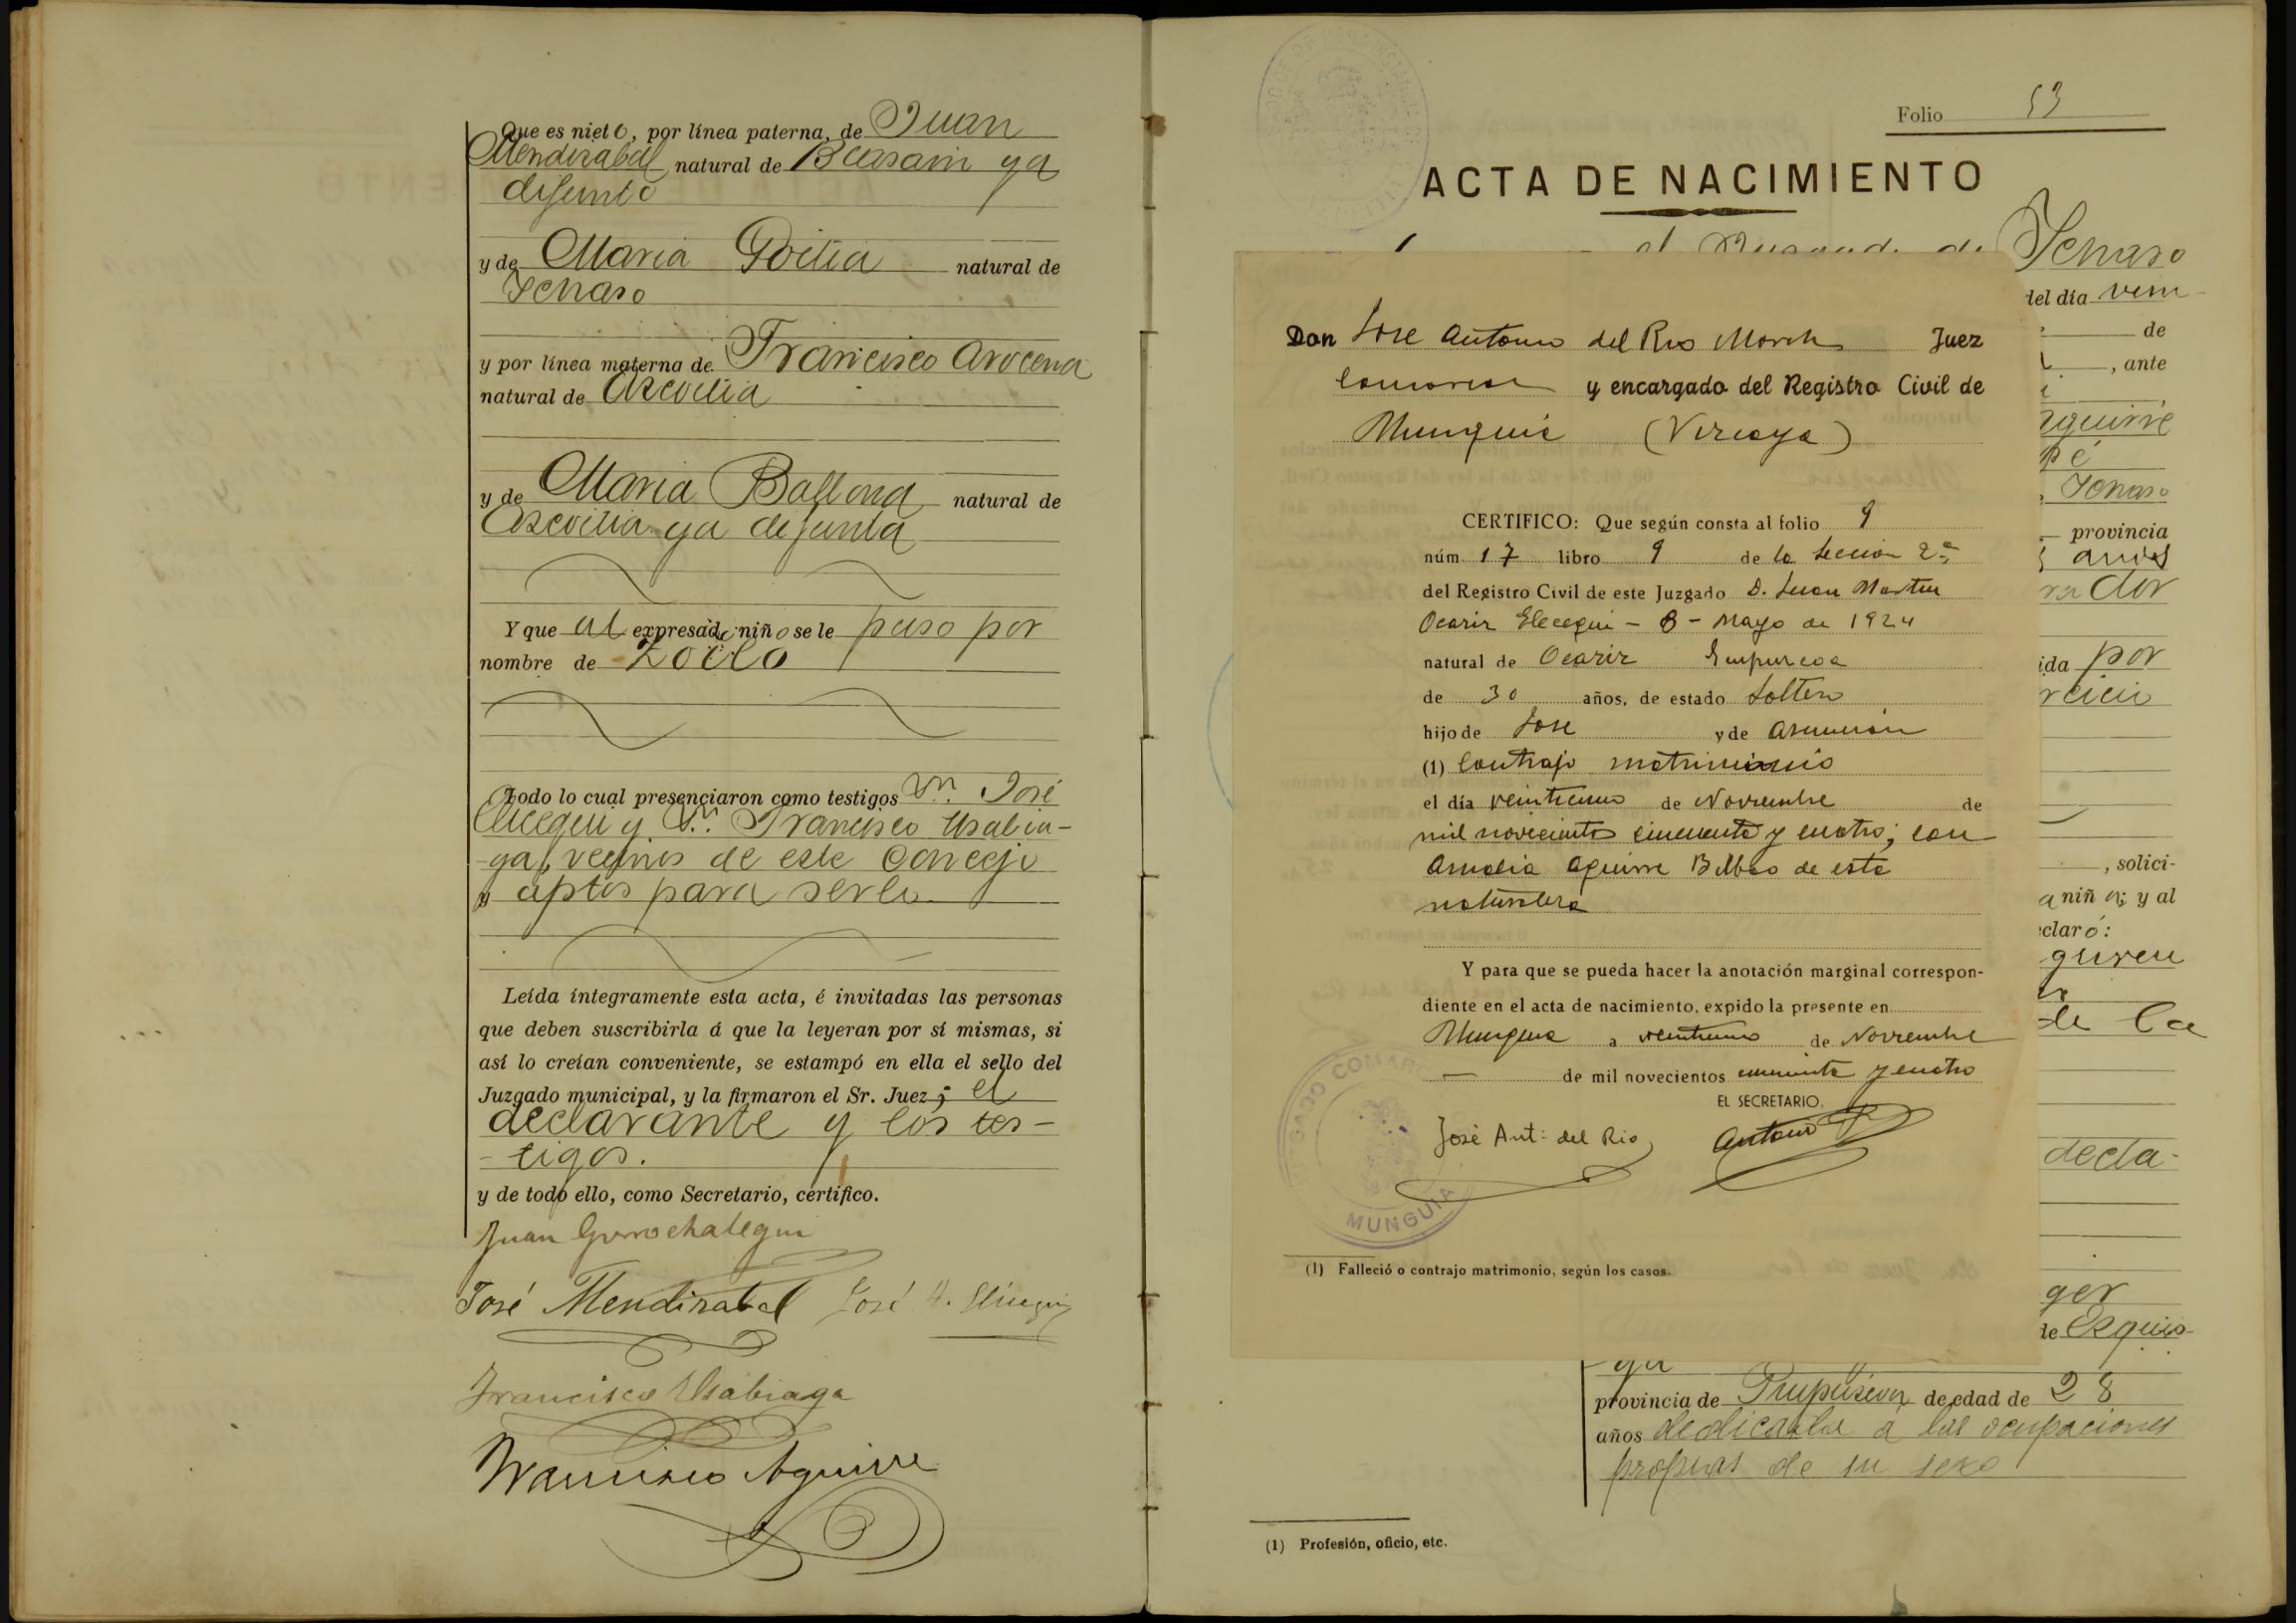 Que es nieto, por línea paterna, de Juan
Mendizabal natural de Beasain ya
difunto
y de Maria Goitia natural de
Ichaso
y por línea materna de Francisco Arocena
natural de Azcoitia
y de Maria Ballona natural de
Azcoitia ya difunta
Y que al expresado niño se le puso por
nombre de Zoilo
Todo lo cual presenciaron como testigos Dn. José
Elicegui y Dn. Francisco Usabia-
-ga, vecinos de este Concejo
y aptos para serlo
Leída íntegramente esta acta, é invitadas las personas
que deben suscribirla á que la leyeran por sí mismas, si
así lo creían conveniente, se estampó en ella el sello del
Juzgado municipal, y la firmaron el Sr. Juez; el
declarante y los tes-
-tigos.
y de todo ello, como Secretario, certifico.
Juan Gorrochategui
José Mendizabal José A. Elicegui
Francisco Usabiaga
Francisco Aguirre
Folio 53
ACTA DE NACIMIENTO
de Ichaso
del día vein-
de
, ante
Don Jose Antonio del Rio Juez
Comarcal y encargado del Registro Civil de
Munguia (Vizcaya)
CERTIFICO: Que según consta al folio 9
núm. 17 libro 9 de la Sección 2ª
del Registro Civil de este Juzgado D. Juan Martin
Ocariz Elicegui - 8 - Mayo de 1924
natural de Guipuzcoa
de 30 años, de estado Soltero
hijo de Jose y de Asunción
(1) Contrajo matrimonio
el día veintiuno de Noviembre de
mil novecientos cincuenta y cuatro; con
Amalia Aguirre Bilbao de esta
naturaleza
Y para que se pueda hacer la anotación marginal correspon-
diente en el acta de nacimiento, expido la presente en
Munguia a veintiuno de Noviembre
de mil novecientos cincuenta y cuatro
EL SECRETARIO,
José Ant: del Rio Antonio
JUZGADO COMARCAL
MUNGUIA
(1) Falleció o contrajo matrimonio, según los casos.
Ichaso
provincia
años
por
, solici-
a niña; y al
declaró:
de la
decla-
de Ezquio-
-ga
provincia de Guipúzcoa de edad de 28
años dedicada á las ocupaciones
propias de su sexo
(1) Profesión, oficio, etc.